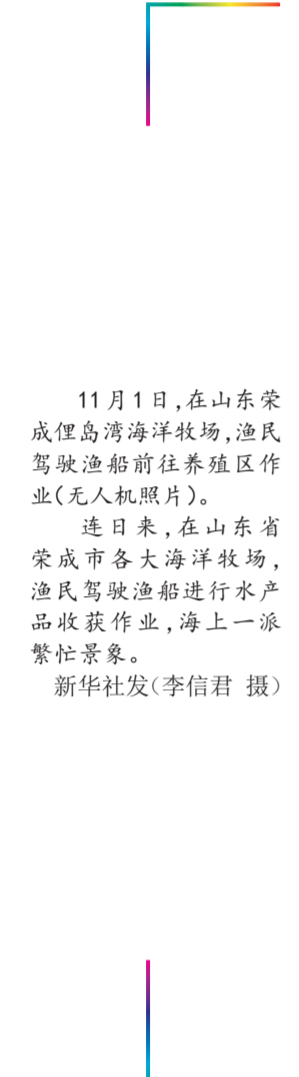 11月1日，在山东荣
成俚岛湾海洋牧场，渔民
驾驶渔船前往养殖区作
业（无人机照片）。
连日来，在山东省
荣成市各大海洋牧场，
渔民驾驶渔船进行水产
品收获作业，海上一派
繁忙景象。
新华社发（李信君 摄）